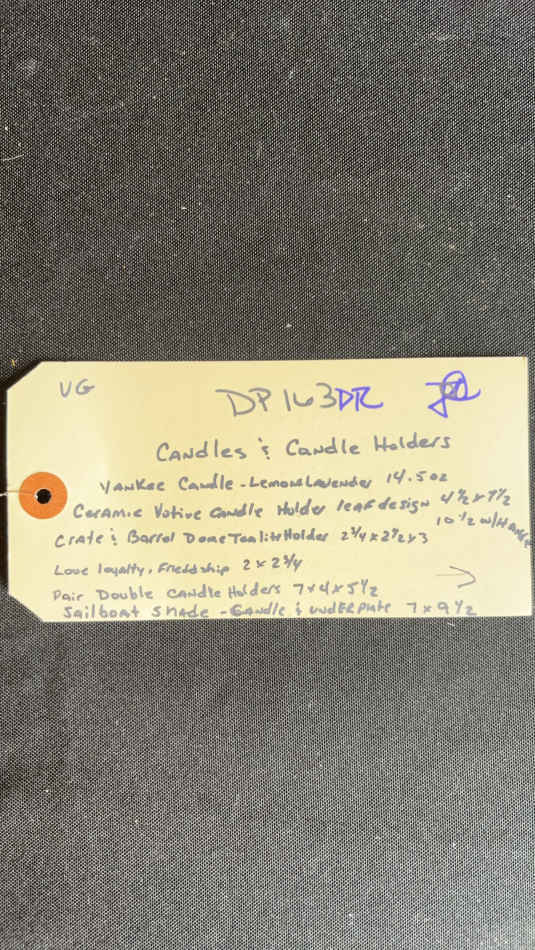 VG
DP 163DR
Candles & Candle Holders
Yankee Candle - Lemon Lavender 14.5 oz
Ceramic Votive Candle Holder leaf design 4 1/2 x 7 1/2
10 1/2 w/
Crate & Barrel Dome Tealite Holder 2 3/4 x 2 1/2 x 3
Love loyalty, Friendship 2 x 2 3/4
Pair Double Candle Holders 7 x 4 x 5 1/2
Sailboat Shade - Candle & underplate 7 x 9 1/2